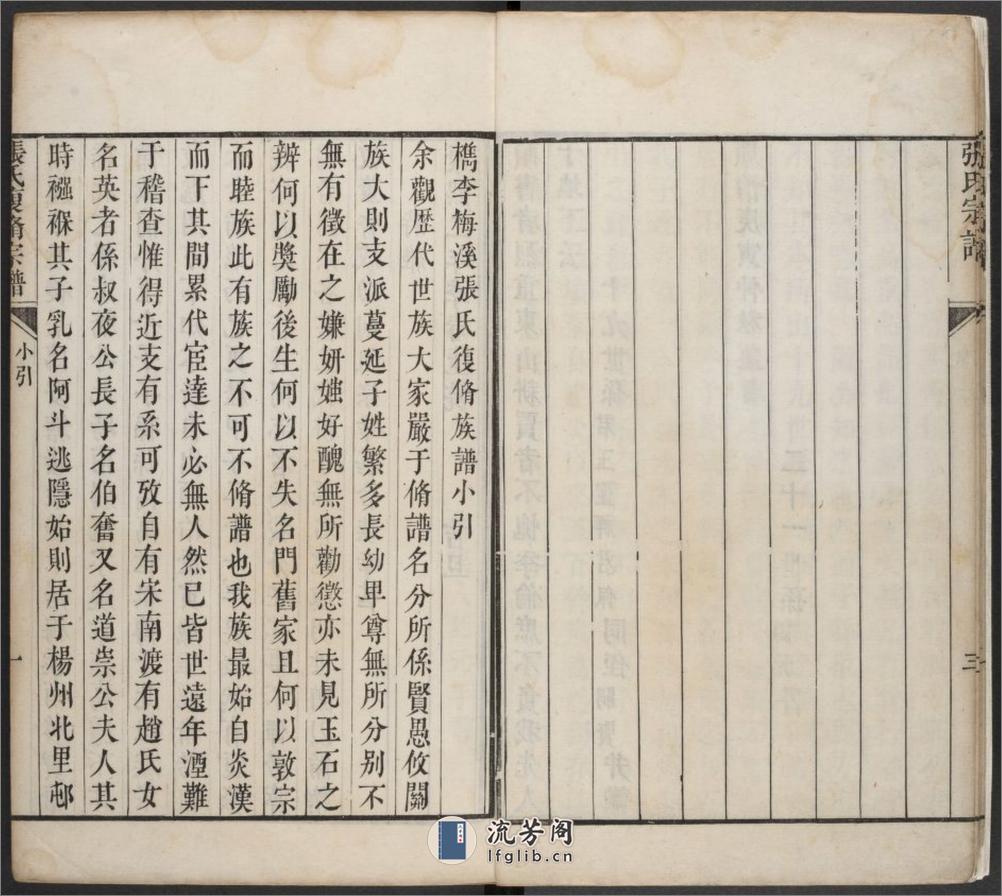 張氏宗譜
三
檇李梅溪張氏復脩族譜小引
余觀歷代世族大家嚴于脩譜名分所係賢愚攸關
族大則支派蔓延子姓繁多長幼卑尊無所分别不
無有徵在之嫌妍媸好醜無所勸懲亦未見玉石之
辨何以獎勵後生何以不失名門舊家且何以敦宗
而睦族此有族之不可不脩譜也我族最始自炎漢
而下其間累代宦達未必無人然已皆世遠年湮難
于稽查惟得近支有系可攷自有宋南渡有趙氏女
名英者係叔夜公長子名伯奮又名道崇公夫人其
時襁褓其子乳名阿斗逃隱始則居于楊州北里邨
張氏復脩宗譜
小引
一
流芳阁
lfglib.cn